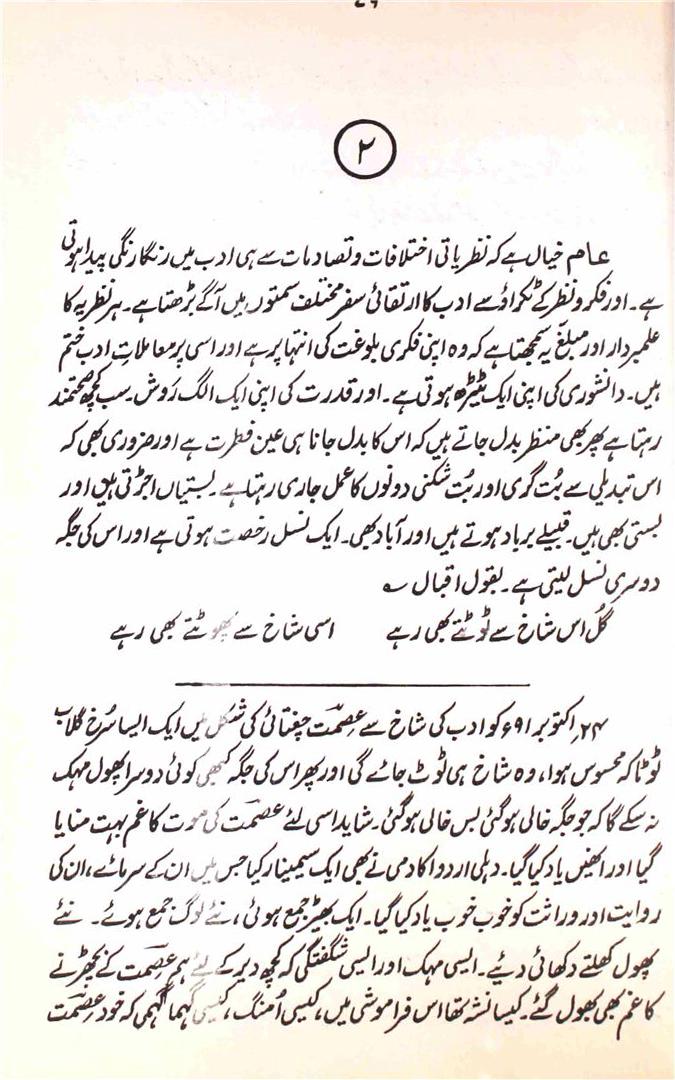 ۲
عام خیال ہے کہ نظریاتی اختلافات و تصادمات سے ہی ادب میں رنگا رنگی پیدا ہوتی
ہے۔ اور فکر و نظر کے ٹکراؤ سے ادب کا ارتقائی سفر مختلف سمتوں میں آگے بڑھتا ہے۔ ہر نظریہ کا
علمبردار اور مبلغ یہ سمجھتا ہے کہ وہ اپنی فکری بلوغت کی انتہا پر ہے اور اسی پر معاملاتِ ادب ختم
ہیں۔ دانشوری کی اپنی ایک ٹیڑھ ہوتی ہے۔ اور قدرت کی اپنی ایک الگ رَوش۔ سب کچھ صحتمند
رہتا ہے پھر بھی منظر بدل جاتے ہیں کہ اس کا بدل جانا ہی عین فطرت ہے اور ضروری بھی کہ
اس تبدیلی سے بُت گری اور بُت شکنی دونوں کا عمل جاری رہتا ہے۔ بستیاں اجڑتی ہیں اور
بستی بھی ہیں۔ قبیلے برباد ہوتے ہیں اور آباد بھی۔ ایک نسل رخصت ہوتی ہے اور اس کی جگہ
دوسری نسل لیتی ہے۔ بقول اقبال ؎
گُل اس شاخ سے ٹوٹتے بھی رہے اسی شاخ سے پھوٹتے بھی رہے
۲۴؍ اکتوبر ۹۱ء کو ادب کی شاخ سے عصمت چغتائی کی شکل میں ایک ایسا سُرخ گلاب
ٹوٹا کہ محسوس ہوا، وہ شاخ ہی ٹوٹ جائے گی اور پھر اس کی جگہ کبھی کوئی دوسرا پھول مہک
نہ سکے گا کہ جو جگہ خالی ہو گئی بس خالی ہو گئی۔ شاید اسی لئے عصمت کی موت کا غم بہت منایا
گیا اور انھیں یاد کیا گیا۔ دہلی اردو اکادمی نے بھی ایک سیمینار کیا جس میں ان کے سرمائے، ان کی
روایت اور وراثت کو خوب خوب یاد کیا گیا۔ ایک بھیڑ جمع ہوئی، نئے لوگ جمع ہوئے۔ نئے
پھول کھلتے دکھائی دیئے۔ ایسی مہک اور ایسی شگفتگی کہ کچھ دیر کے لئے ہم عصمت کے بچھڑنے
کا غم بھی بھول گئے۔ کیسا نشہ تھا اس فراموشی میں، کیسی اُمنگ، کیسی گہما گہمی کہ خود عصمت